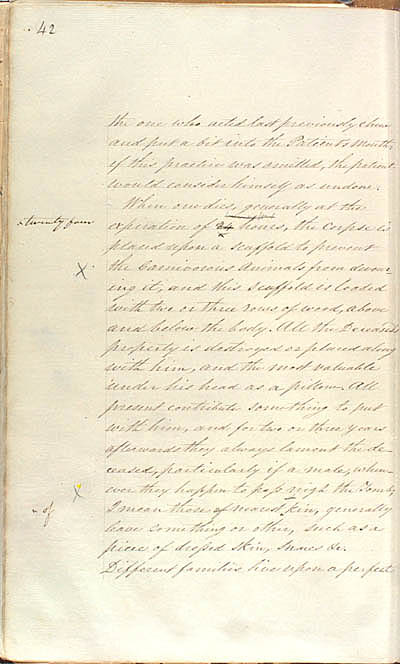 42
the one who acted last previously chew
and put a bit into the Patient's mouth,
if this practice was omitted, the patient
would consider himself as undone.
When one dies, generally at the
- twenty four
expiration of 24 hours, the Corpse is
placed upon a scaffold to prevent
X
the Carnivorous Animals from devour-
ing it, and this scaffold is loaded
with two or three rows of wood, above
and below the body. All the Deceased's
property is destroyed or placed along
with him, and the most valuable
under his head as a pillow. All
present contribute something to put
with him, and for two or three years
afterwards they always lament the de-
ceased, particularly if a male, when-
X
ever they happen to pass nigh the Tomb,
- of
I mean those of nearest kin, generally
leave something or other, such as a
piece of dressed Skin, snares &c.
Different families live upon a perfect